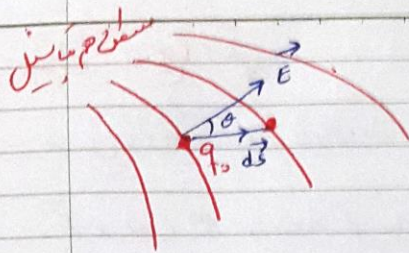 سطوح هم پتانسیل
E
θ
q₀
ds